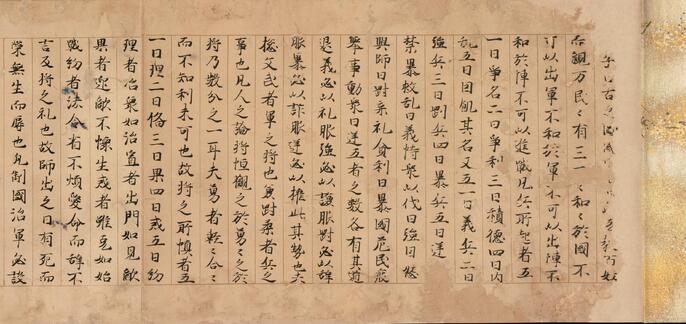 而親万民々有三不和々於國不
可以出軍不和於軍不可以出陣不
和於陣不可以進戰凡兵所起者五
一曰爭名二曰爭利三曰積德四曰内
乱五曰因飢其名又五一曰義兵二曰
強兵三曰剛兵四曰暴兵五曰逆
禁暴救乱曰義恃衆以伐曰強因怒
興師曰剛棄礼貪利曰暴國危民疲
擧事動衆曰逆五者之數各有其道
義必以礼服強必以謙服剛必以辞
服暴必以詐服逆必以權此其勢也夫
揔文武者軍之將也兼剛柔者兵之
事也凡人之論將恒觀之於勇々之於
將乃數分之一耳夫勇者輕々合々
而不知利未可也故將之所慎者五
一曰理二曰備三曰果四曰戒五曰約
理者治衆如治寡者出門如見敵
果者敵不懐生戒者雖克如始
戰約者法令省不煩受命而辞不
言反將之礼也故師出之日有死而
榮無生而辱也凡制國治軍必設